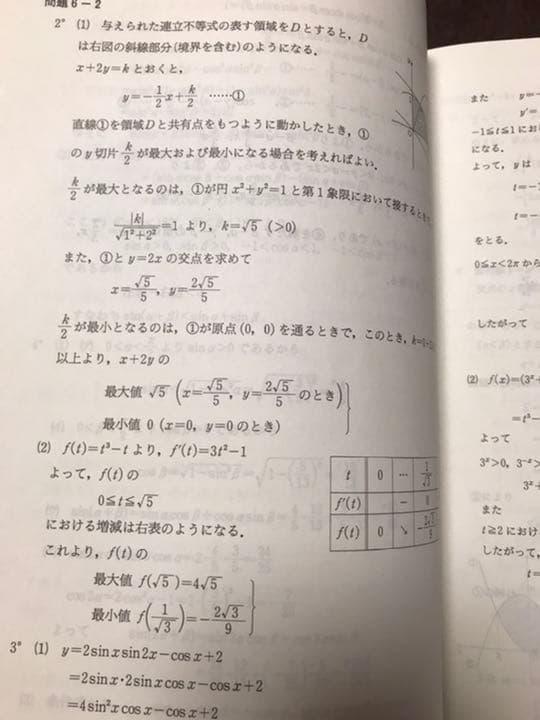 問題6-2
2° (1) 与えられた連立不等式の表す領域をDとすると，D
は右図の斜線部分(境界を含む)のようになる．
x+2y=k とおくと，
y=-1/2 x+k/2 ……①
直線①を領域Dと共有点をもつように動かしたとき，①
のy切片 k/2 が最大および最小になる場合を考えればよい．
k/2 が最大となるのは，①が円 x²+y²=1 と第1象限において接するとき
|k|/√(1²+2²)=1 より，k=√5 (>0)
また，①と y=2x の交点を求めて
x=√5/5，y=2√5/5
k/2 が最小となるのは，①が原点(0，0)を通るときで，このとき，
以上より，x+2y の
最大値 √5 (x=√5/5，y=2√5/5 のとき)
最小値 0 (x=0，y=0 のとき)
(2) f(t)=t³-t より，f'(t)=3t²-1
よって，f(t) の
0≦t≦√5
における増減は右表のようになる．
これより，f(t) の
最大値 f(√5)=4√5
最小値 f(1/√3)=-2√3/9
t 0 … 1/√3
f'(t) - 0
f(t) 0 ↘ -2√3/9
3° (1) y=2sin x sin 2x-cos x+2
=2sin x･2sin x cos x-cos x+2
=4sin²x cos x-cos x+2
また
y'=
-1≦t≦1 にお
になる．
よって，y は
t=-
t=-
をとる．
0≦x<2π から
したがって
(2) f(x)=(3ˣ+
=t³-
よって
3ˣ>0，3⁻ˣ>
3ˣ+
また
t≧2 におけ
したがって，
t=